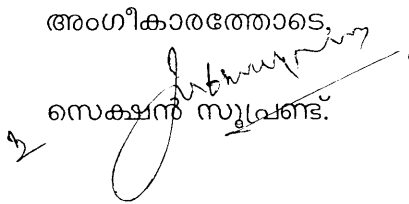 അംഗീകാരത്തോടെ,
സെക്ഷൻ സൂപ്രണ്ട്.